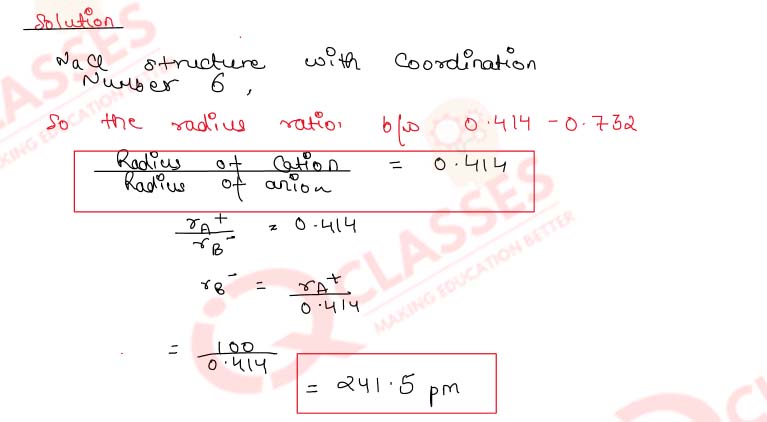 Solution
NaCl structure with Coordination
Number 6,
So the radius ratio b/w 0.414 - 0.732
Radius of Cation / Radius of anion = 0.414
rA+ / rB- = 0.414
rB- = rA+ / 0.414
= 100 / 0.414
= 241.5 pm
CLASSES
MAKING EDUCATION BETTER
CLASSES
MAKING EDUCATION BETTER